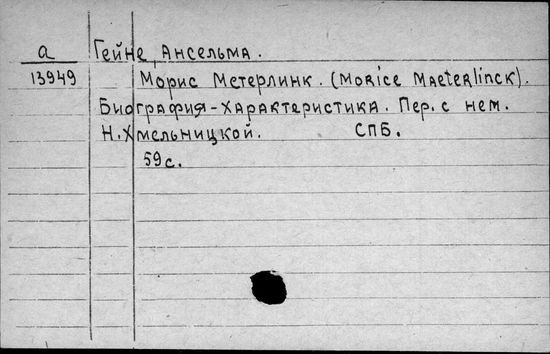 а Гейне, Ансельма.
13949 Морис Метерлинк. (Morice Maeterlinck).
Биография-характеристика. Пер. с нем.
Н. Хмельницкой. СПБ.
59 с.